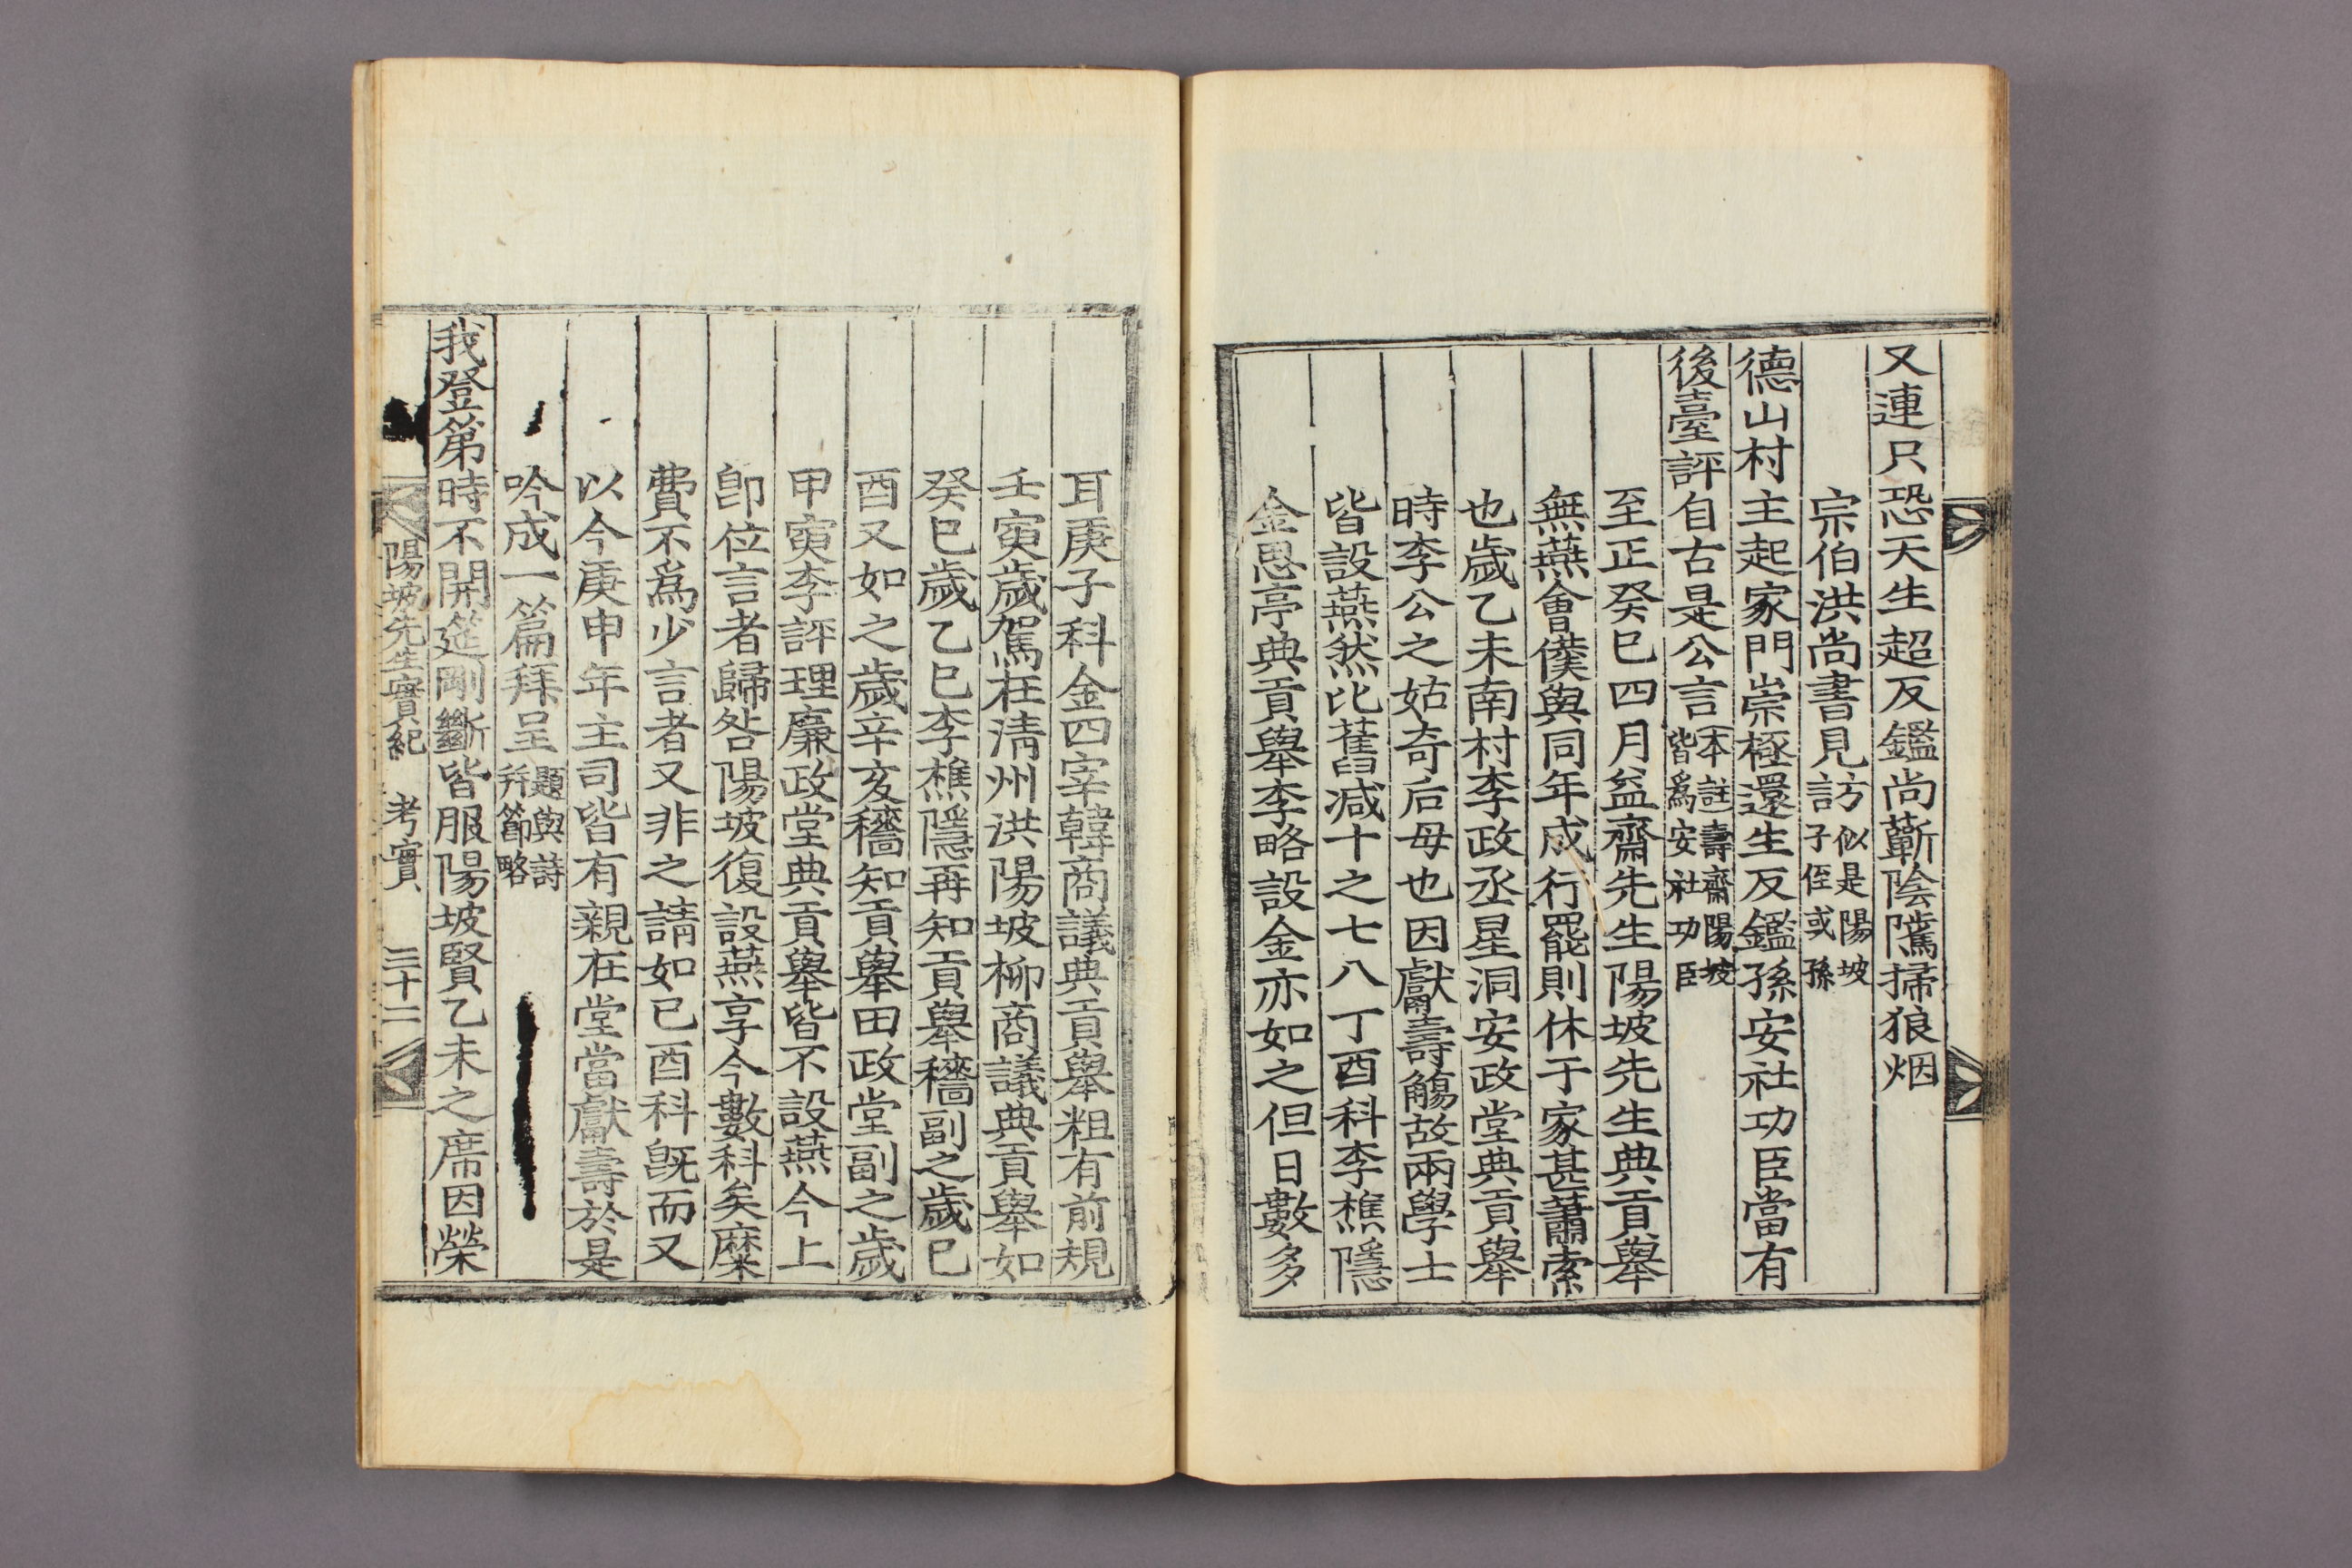 又連只恐天生超反鑑尚蘄陰隲掃狼烟
宗伯洪尚書見訪似是陽坡子侄或孫
德山村主起家門崇極還生反鑑孫安社功臣當有
後臺評自古是公言本註壽齋陽坡皆爲安社功臣
至正癸巳四月益齋先生陽坡先生典貢擧
無燕會僕與同年成行罷則休于家甚蕭索
也歲乙未南村李政丞星洞安政堂典貢擧
時李公之姑奇后母也因獻壽觴故兩學士
皆設燕然比舊減十之七八丁酉科李樵隱
金思亭典貢擧李略設金亦如之但日數多
耳庚子科金四宰韓商議典貢擧粗有前規
壬寅歲駕在淸州洪陽坡柳商議典貢擧如
癸巳歲乙巳李樵隱再知貢擧穡副之歲己
酉又如之歲辛亥穡知貢擧田政堂副之歲
甲寅李評理廉政堂典貢擧皆不設燕今上
卽位言者歸咎陽坡復設燕享今數科矣糜
費不爲少言者又非之請如己酉科旣而又
以今庚申年主司皆有親在堂當獻壽於是
吟成一篇拜呈題與詩幷節略
我登第時不開筵剛斷皆服陽坡賢乙未之席因榮
陽坡先生實紀 考實 三十二